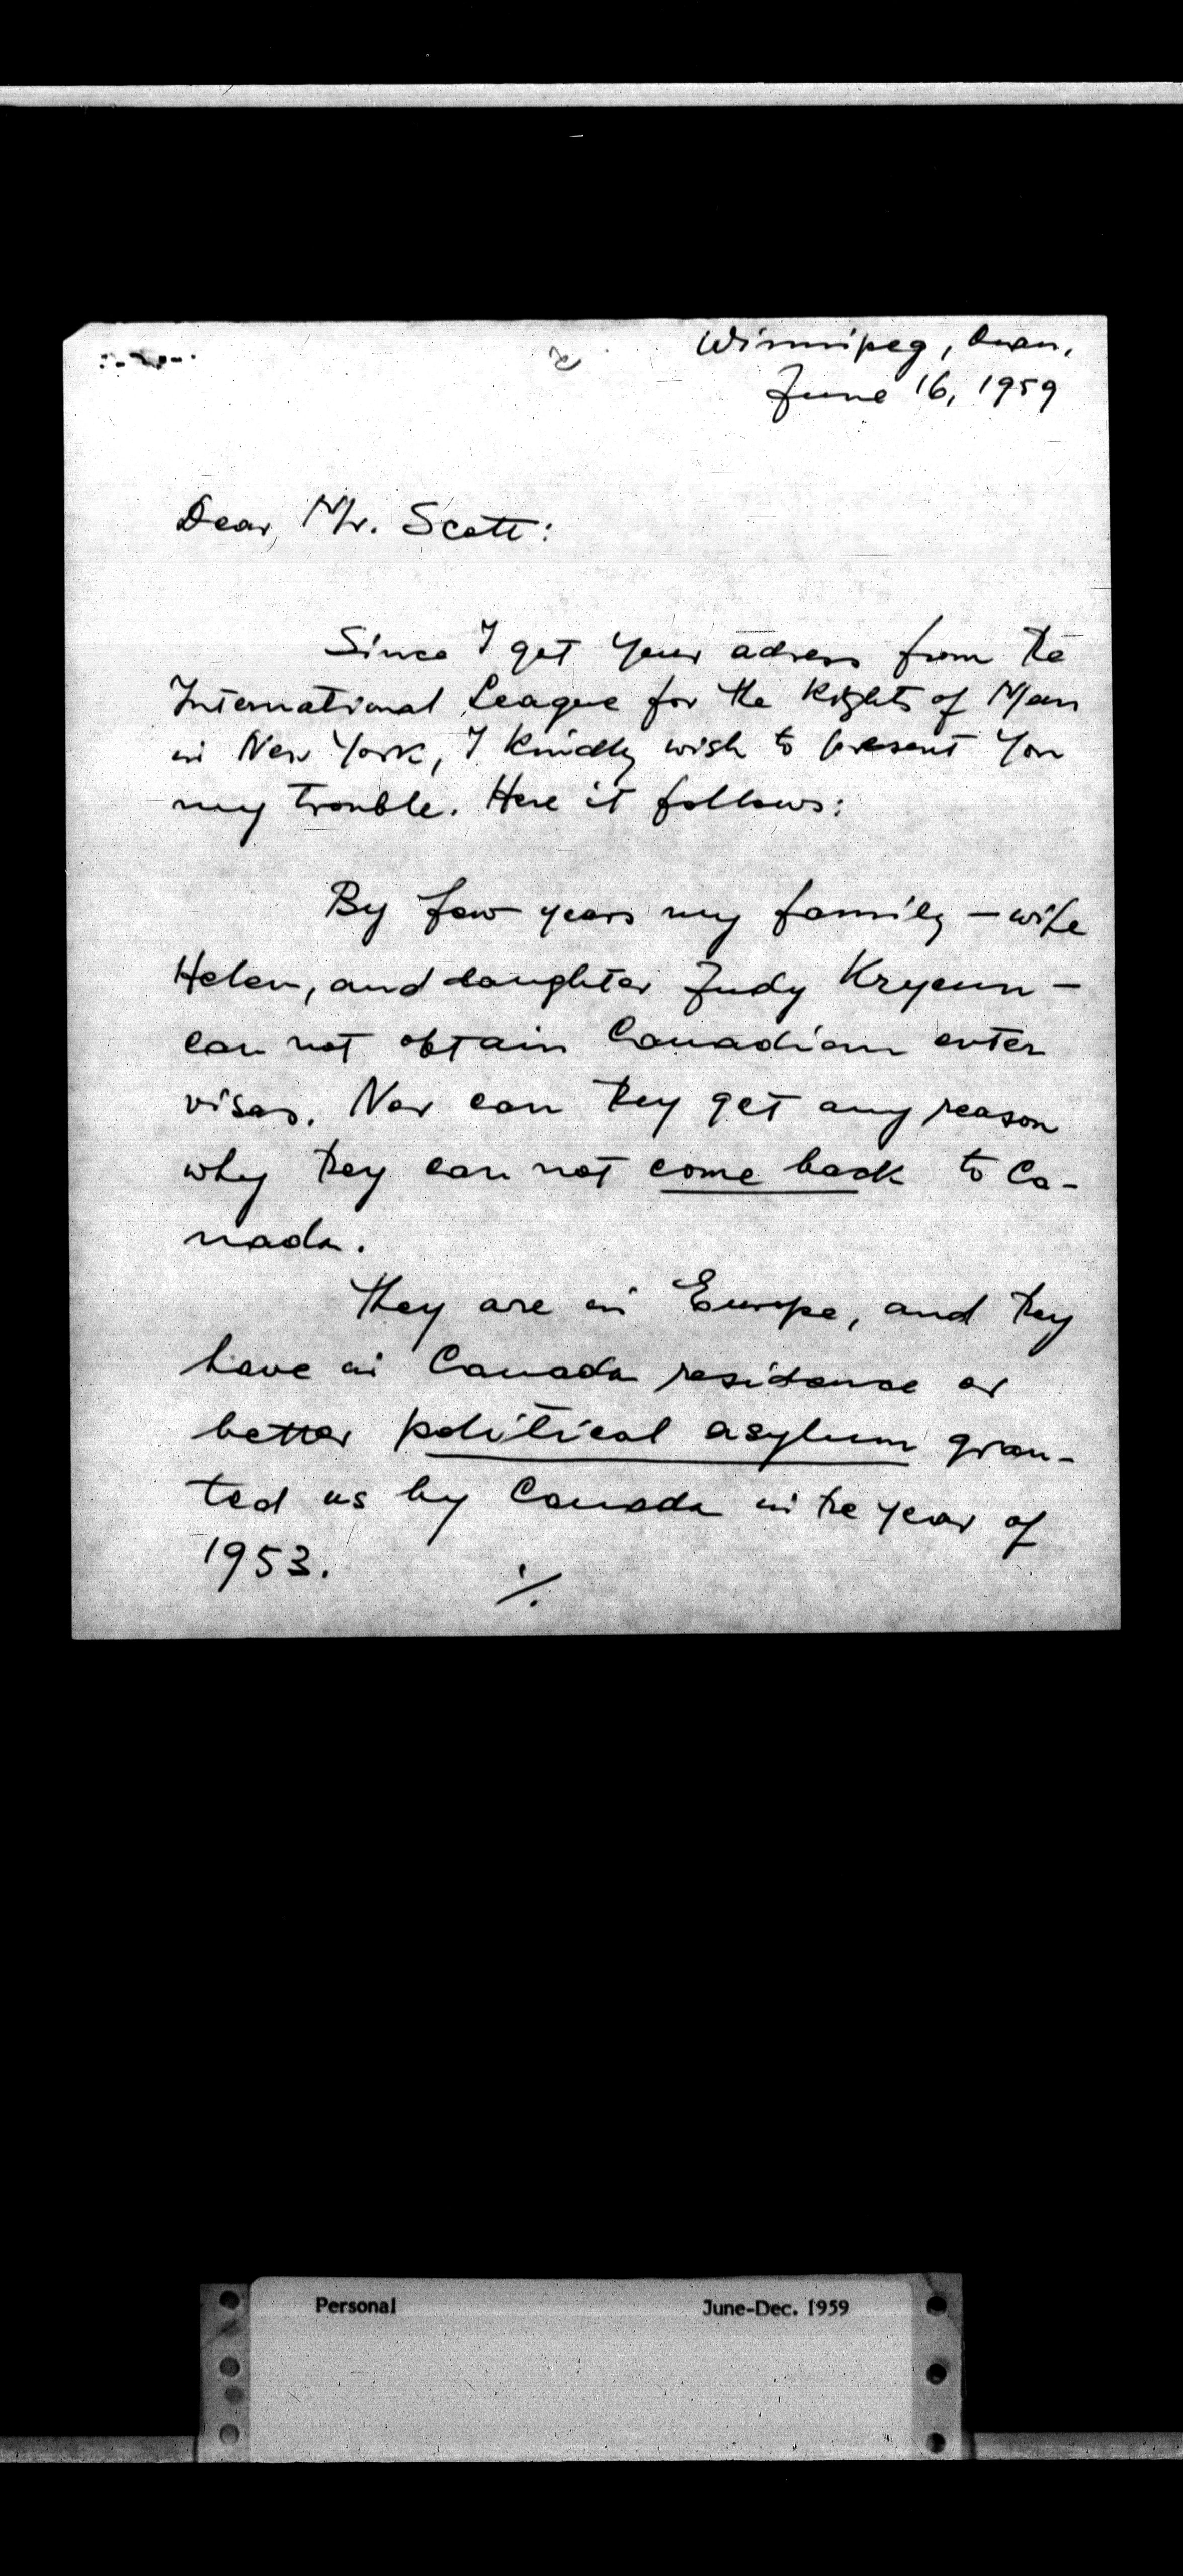 Winnipeg, Man.
June 16, 1959
Dear, Mr. Scott:
Since I get Your adress from the
International League for the Rights of Man
in New York, I kindly wish to present You
my trouble. Here it follows:
By few years my family – wife
Helen, and daughter Judy –
can not obtain Canadian enter
visas. Nor can they get any reason
why they can not come back to Ca-
nada.
They are in Europe, and they
have in Canada residance or
better political asylum gran-
ted us by Canada in the year of
1953.
./.
Personal June-Dec. 1959